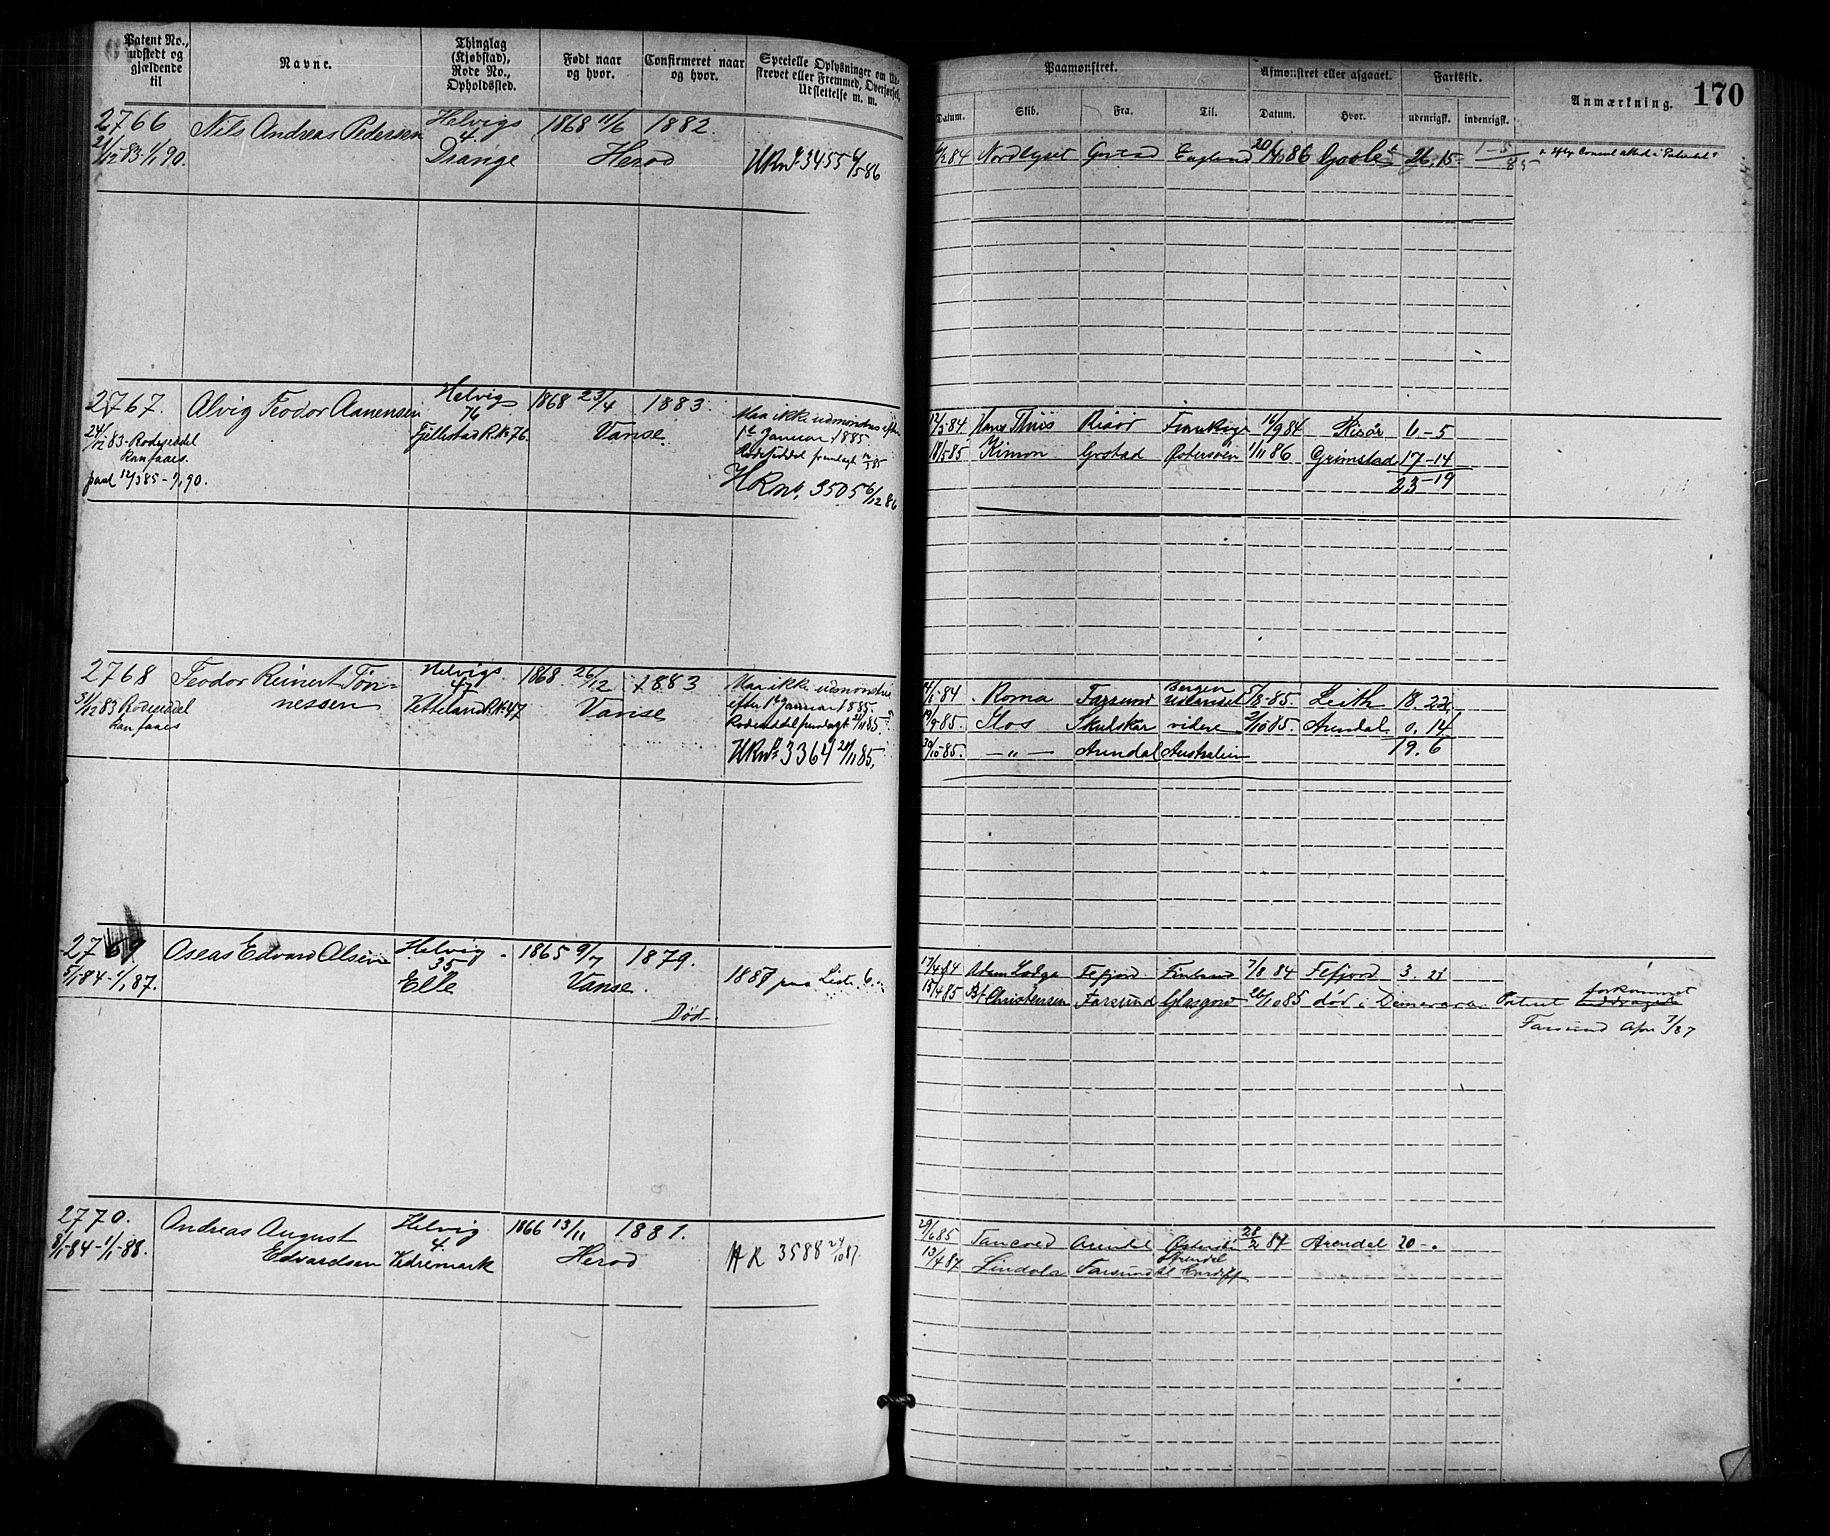 Patent No., udstedt og gjældende til
Navne.
Thinglag (Kjøbstad), Rode No., Opholdssted.
Født naar og hvor.
Confirmeret naar og hvor.
Specielle Oplysninger om Udskrevet eller Fremmed, Overførsel, Udslettelse m. m.
Paamønstret.
Datum.
Skib.
Fra.
Til.
Afmønstret eller afgaaet.
Datum.
Hvor.
Fartstid.
udenrigsk.
indenrigsk.
Anmærkning.
170
2766 Nils Andreas Pedersen Helvigs 1868 11/6 1882.
21/12 83-1/1 90. 4. Drange Herod
HRN 3455 4/5 86
84 Nordlyset Grstad England 20/10 86 Goole 26.15 1-5/85
2767. Alvig Teodor Aanensen Helvig 1868 23/4 1883.
24/12 83-Rodeseddel 76 Vanse.
kan faaes. Fjellestad R.No 76.
paal 12/3 85-1/1 90.
Maa ikke udmønstres efter
1ste Januar 1885.
Rodeseddel fremlagt 12/3 85
HRNo. 3505 6/12 86
12/3 84. Hans Thiis Risør Frankrige 11/9 84 Risør 6-5
18/5 85 Kimon Grstad Østersøen 1/11 86 Grimstad 17-14
23-19
2768 Teodor Reinert Tønnessen Helvigs 1868 26/12 1883
31/12 83 Rodeseddel 47 Vanse
kan faaes Vetteland R.No 47
Maa ikke udmønstres
efter 1ste Januar 1885.
Rodeseddel fremlagt 21/11 85
HRNo 3364 21/11 85.
84 Roma Farsund Bergen 5/8-85. Leith 18.22
19/9 85. Skos Skudskär videre 2/10 85. Arendal 0.14
30/10-85. -"- Arendal Australien 19.6
2769 Oseas Edvard Olsen Helvig 1865 9/7 1879.
5/1-84-1/1 87. 35 Elle Vanse.
Død.
1887 paa Liste 6.
17/4 84 Adam Lodge Fefjord Finland 7/8 84 Fefjord 3.21
15/4 85 Bt Christensen Farsund Glasgow 26/10 85 død i Demerara. Patent forkommet
Farsund Apr 7/87
2770. Andreas August Helvig 1866 13/11 1881.
8/1-84-1/1-88. Edvardsen 4. Hedremark Herod
HR 3588 24/10 87.
29/6 85 Tancred Arendl Østersøen 28/2 87 Arendal 20-.
13/4 87 Lindola Farsund Arendal til Cardiff